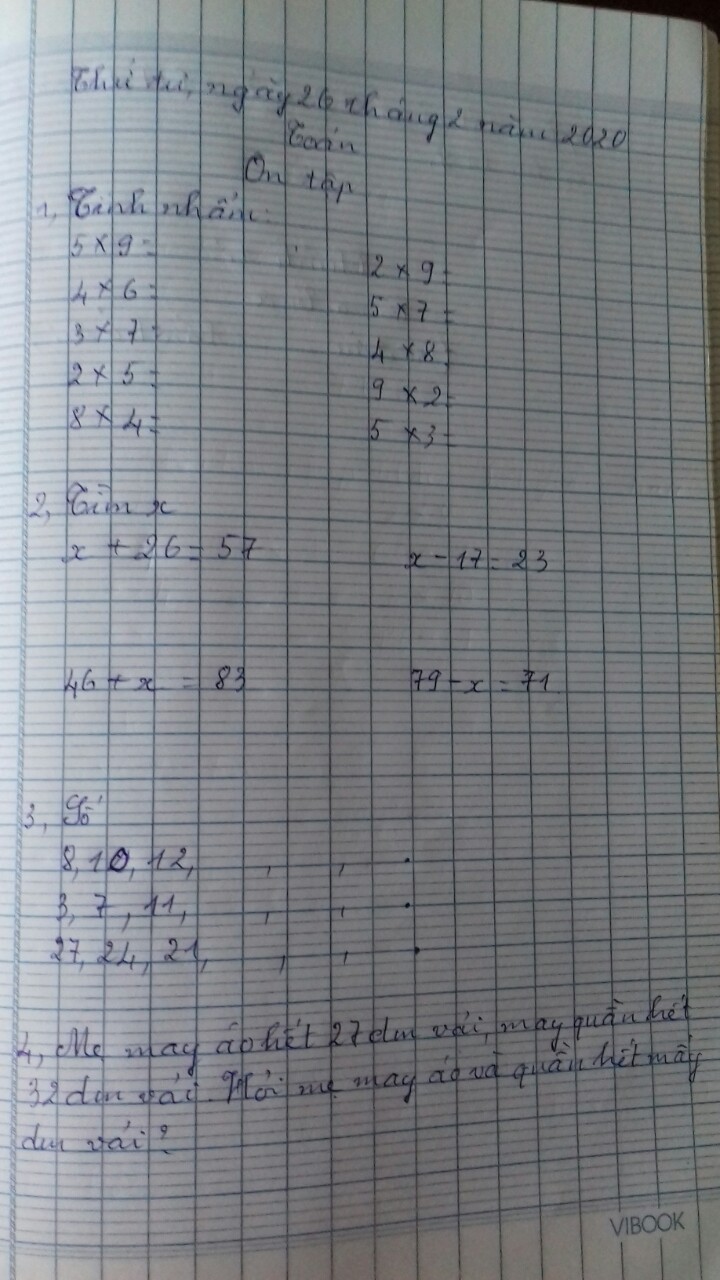 Thứ tư, ngày 26 tháng 2 năm 2020
Toán
Ôn tập
1, Tính nhẩm:
5 × 9 =
2 × 9 =
4 × 6 =
5 × 7 =
3 × 7 =
4 × 8 =
2 × 5 =
9 × 2 =
8 × 4 =
5 × 3 =
2, Tìm x
x + 26 = 57
x - 17 = 23
46 + x = 83
79 - x = 71
3, Số
8, 10, 12, , , .
3, 7, 11, , , .
27, 24, 21, , , .
4, Mẹ may áo hết 27 dm vải, may quần hết
32 dm vải. Hỏi mẹ may áo và quần hết mấy
dm vải?
VIBOOK